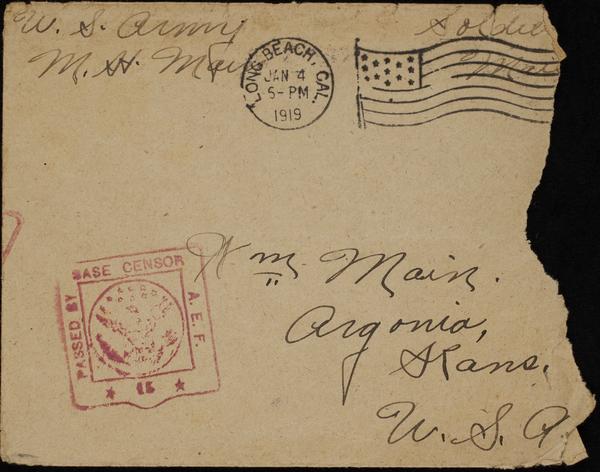 U. S. Army
M. H. Main
Soldier
Mai
LONG BEACH, CAL.
JAN 4
5-PM
1919
PASSED BY BASE CENSOR A.E.F.
Wm Main.
Argonia,
Kans.
U. S. A.